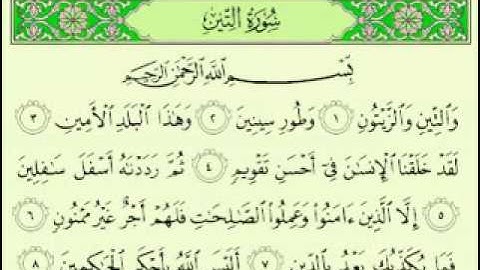 سُورَةُ التِّينِ
بِسْمِ اللَّهِ الرَّحْمَٰنِ الرَّحِيمِ
وَٱلتِّينِ وَٱلزَّيْتُونِ ١ وَطُورِ سِينِينَ ٢ وَهَٰذَا ٱلْبَلَدِ ٱلْأَمِينِ ٣
لَقَدْ خَلَقْنَا ٱلْإِنسَٰنَ فِىٓ أَحْسَنِ تَقْوِيمٍ ٤ ثُمَّ رَدَدْنَٰهُ أَسْفَلَ سَٰفِلِينَ
٥ إِلَّا ٱلَّذِينَ ءَامَنُوا۟ وَعَمِلُوا۟ ٱلصَّٰلِحَٰتِ فَلَهُمْ أَجْرٌ غَيْرُ مَمْنُونٍ ٦
فَمَا يُكَذِّبُكَ بَعْدُ بِٱلدِّينِ ٧ أَلَيْسَ ٱللَّهُ بِأَحْكَمِ ٱلْحَٰكِمِينَ ٨